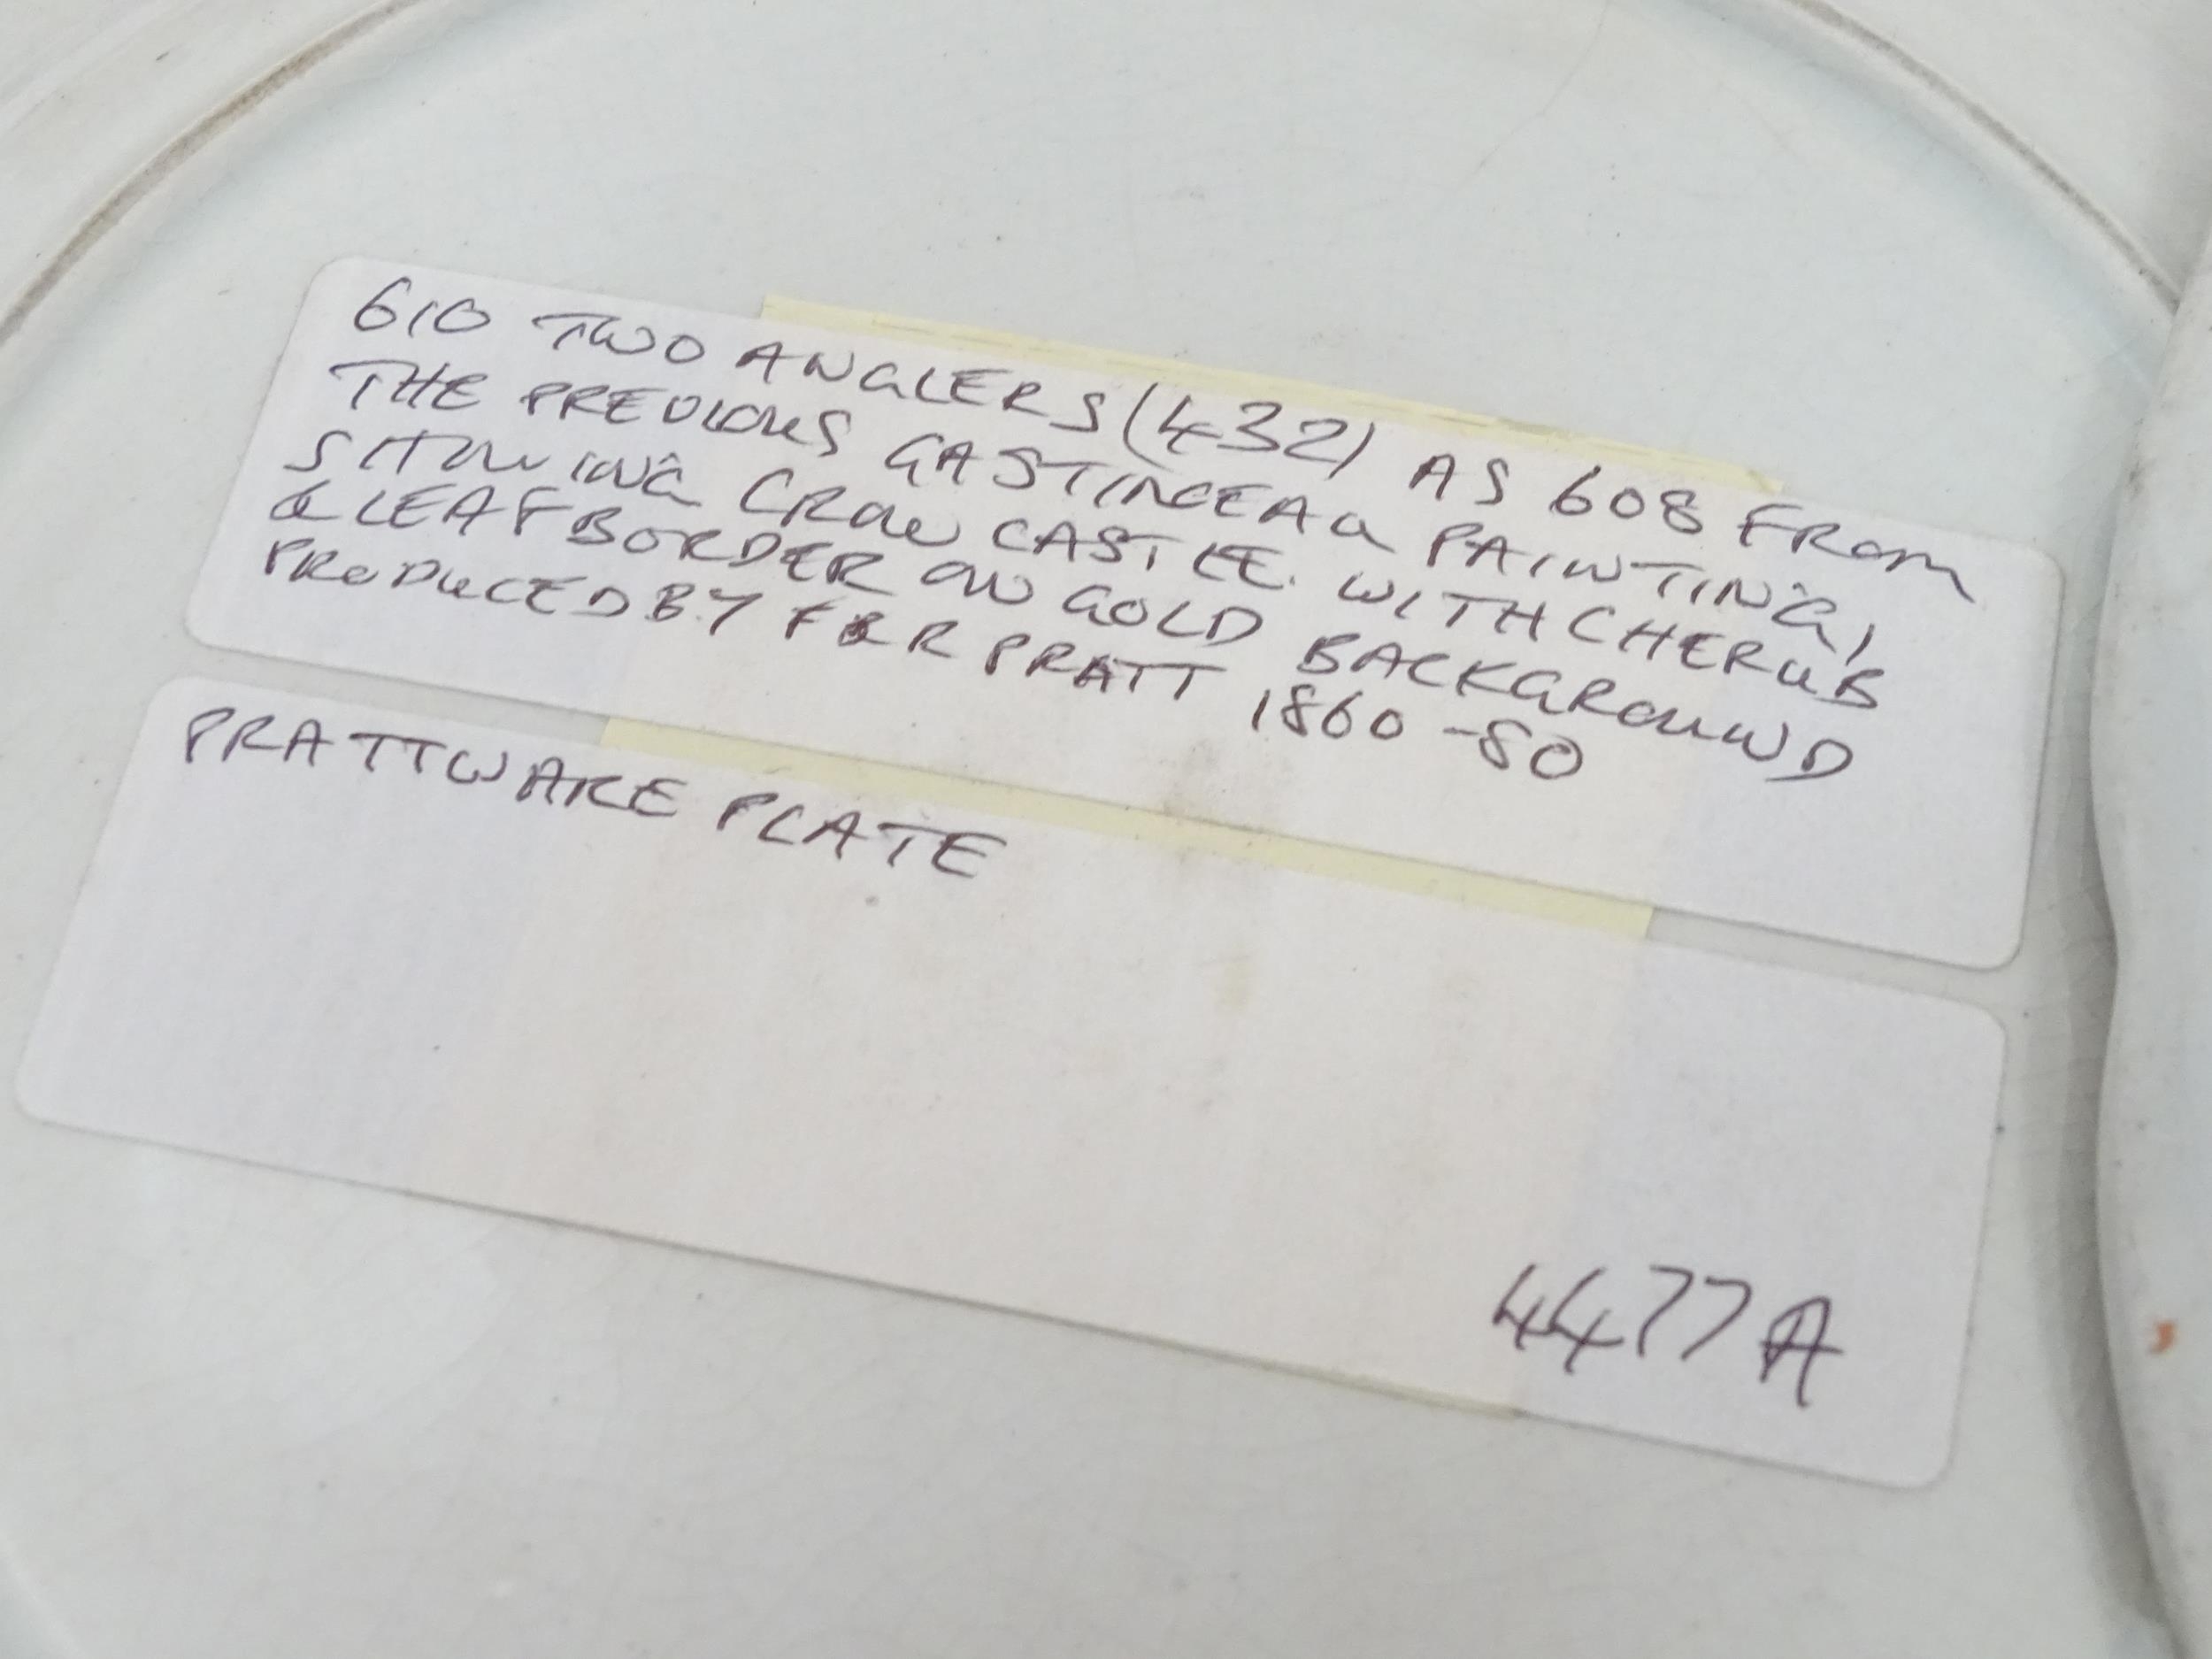 610 TWO ANGLERS (432) AS 608 FROM
THE PREVIOUS GASTINEAU PAINTING,
SHOWING CROW CASTLE. WITH CHERUB
& LEAF BORDER ON GOLD BACKGROUND
PRODUCED BY F&R PRATT 1860-80
PRATTWARE PLATE
4477A